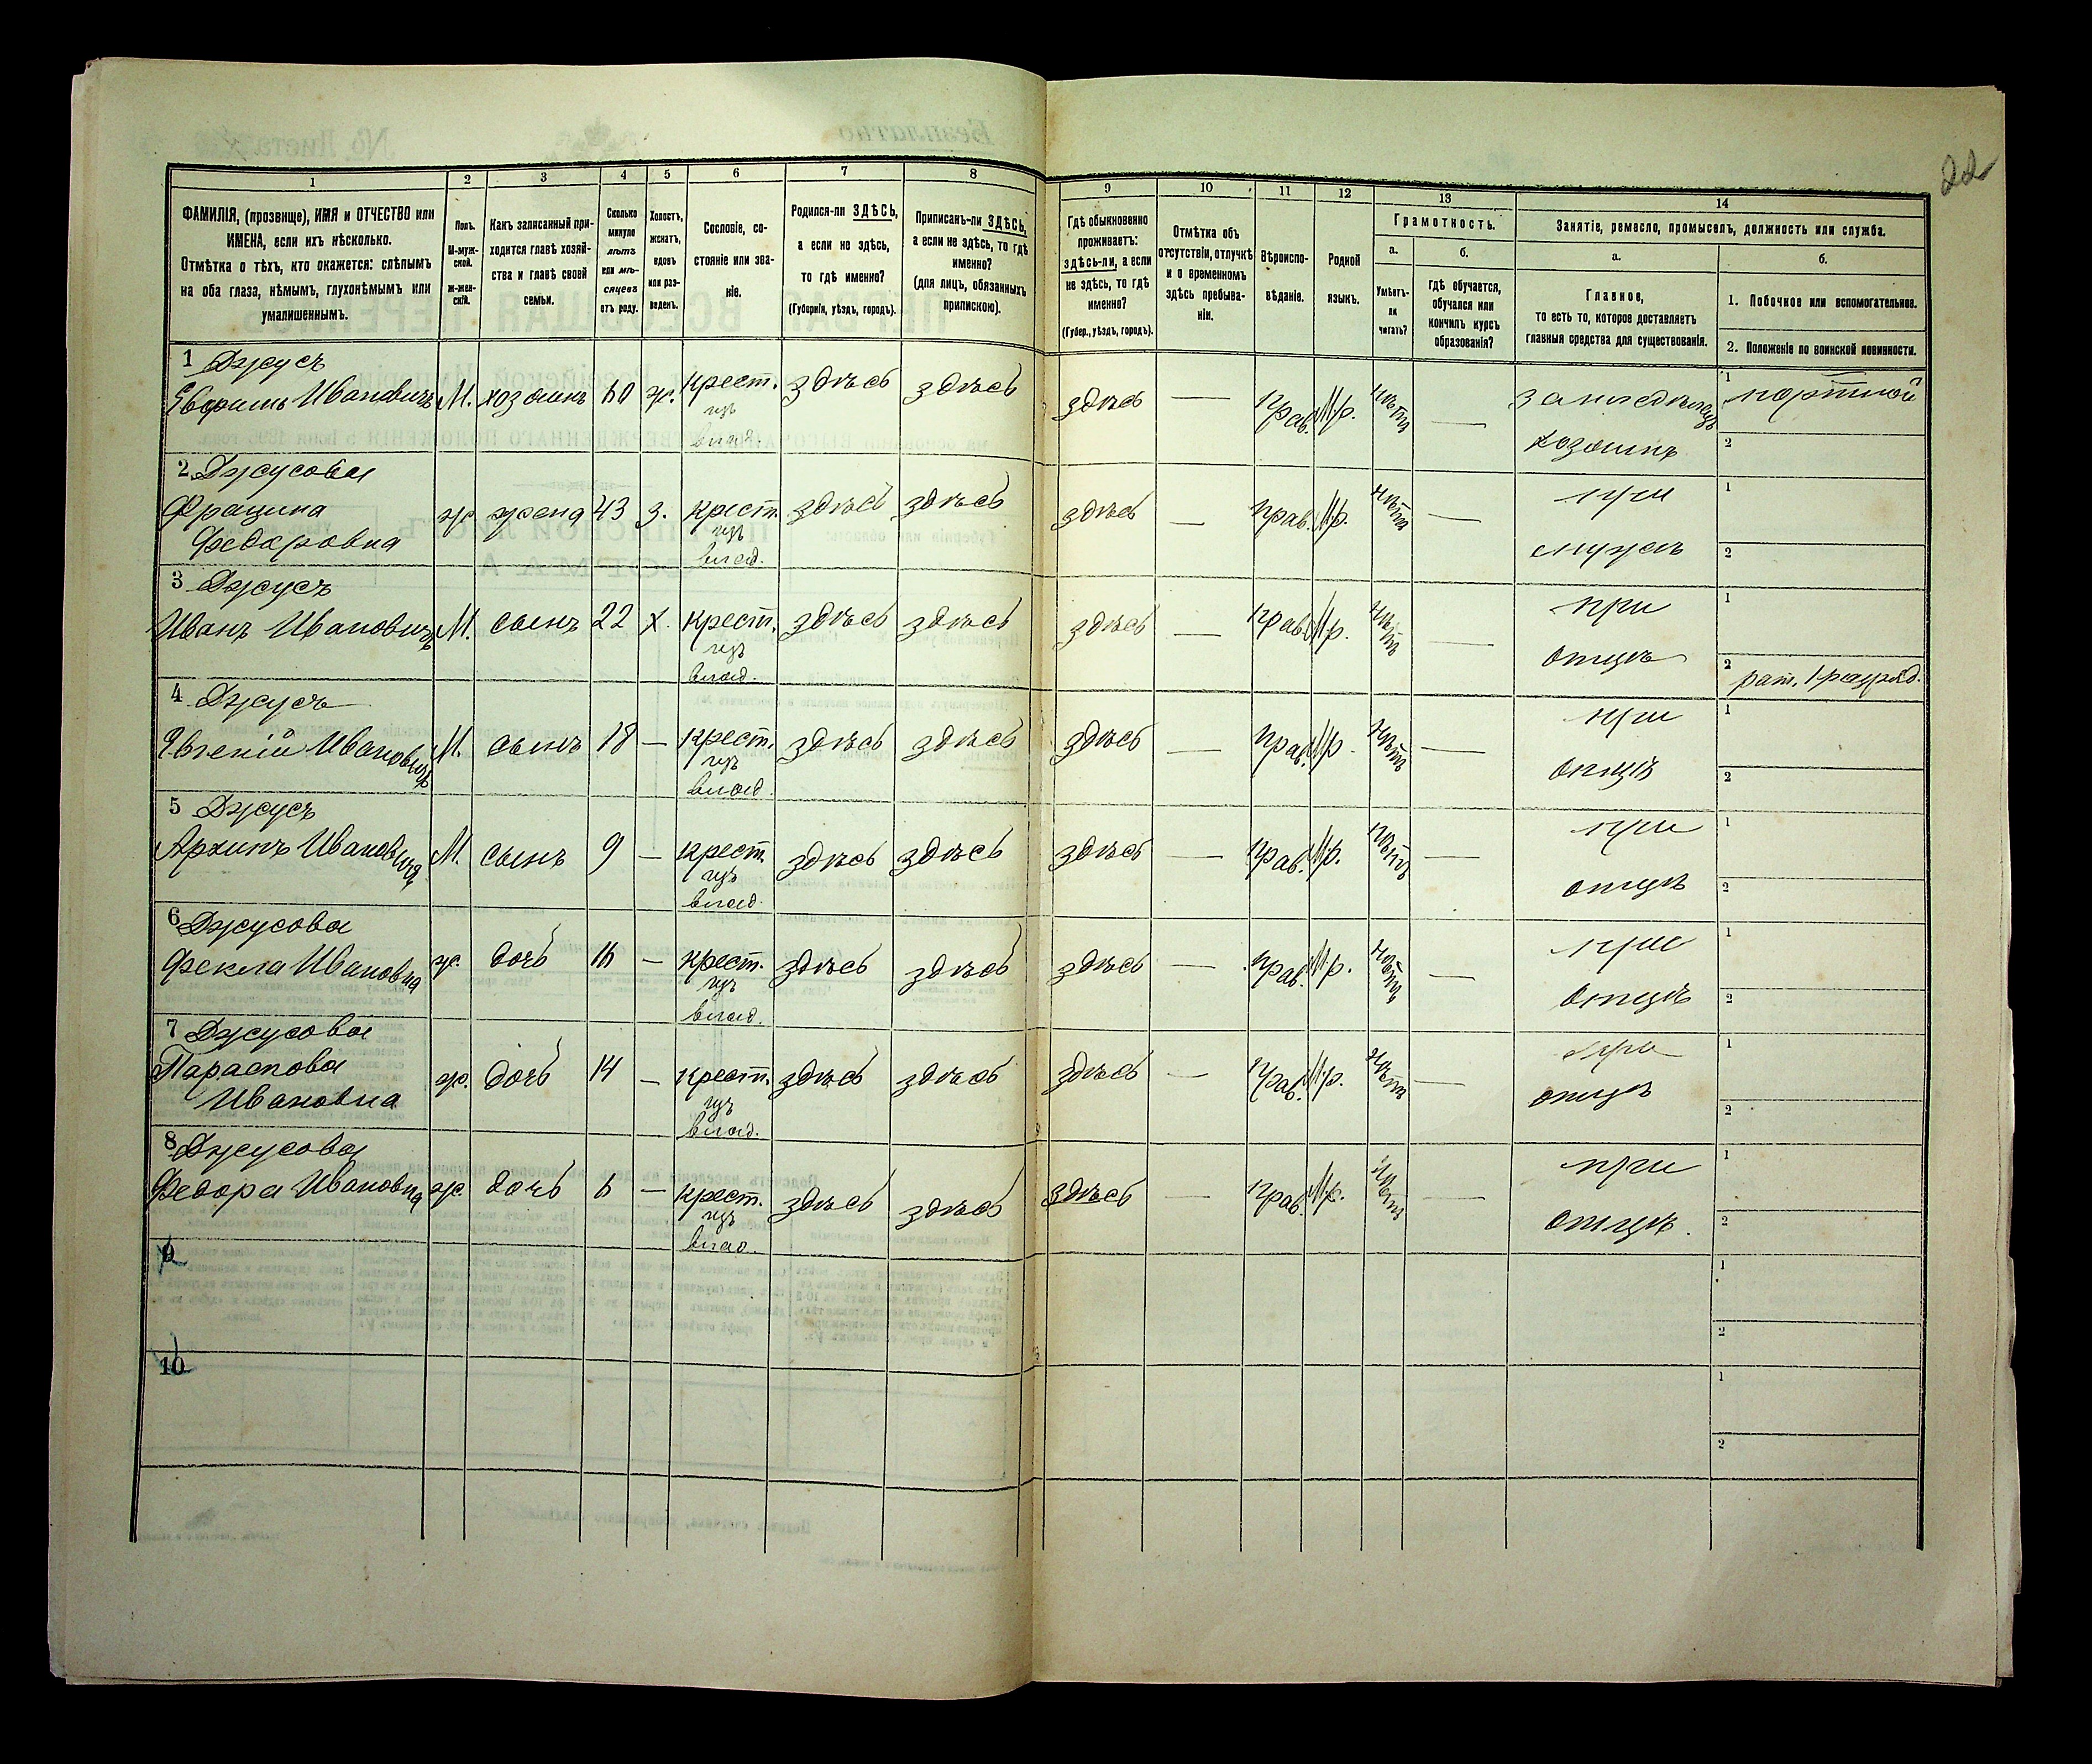 22
1 2 3 4 5 6 7 8 9 10 11 12 13 14
ФАМИЛІЯ, (прозвище), ИМЯ и ОТЧЕСТВО или
ИМЕНА, если ихъ нѣсколько.
Отмѣтка о тѣхъ, кто окажется: слѣпымъ
на оба глаза, нѣмымъ, глухонѣмымъ или
умалишеннымъ.
Полъ.
М-муж-
ской.
Ж-жен-
скій.
Какъ записанный при-
ходится главѣ хозяй-
ства и главѣ своей
семьи.
Сколько
минуло
лѣтъ
или мѣ-
сяцевъ
отъ роду.
Холостъ,
женатъ,
вдовъ
или раз-
веденъ.
Сословіе, со-
стояніе или зва-
ніе.
Родился-ли ЗДѢСЬ,
а если не здѣсь,
то гдѣ именно?
(Губернія, уѣздъ, городъ).
Приписанъ-ли ЗДѢСЬ,
а если не здѣсь, то гдѣ
именно?
(для лицъ, обязанныхъ
припискою).
Гдѣ обыкновенно
проживаетъ:
здѣсь-ли, а если
не здѣсь, то гдѣ
именно?
(Губер., уѣздъ, городъ).
Отмѣтка объ
отсутствіи, отлучкѣ
и о временномъ
здѣсь пребыва-
ніи.
Вѣроиспо-
вѣданіе.
Родной
языкъ.
Грамотность.
а.
Умѣетъ-
ли
читать?
б.
гдѣ обучается,
обучался или
кончилъ курсъ
образованія?
Занятіе, ремесло, промыселъ, должность или служба.
а.
Главное,
то есть то, которое доставляетъ
главныя средства для существованія.
б.
1. Побочное или вспомогательное.
2. Положеніе по воинской повинности.
1 Джусъ
Иванович М. хозяинъ ж. крест. здѣсь здѣсь здѣсь — прав. М.р. нѣтъ — земледѣлецъ 1 портной
изъ
влад. хозяинъ 2
2 Джусова
Федоровна ж. жена 43 з. крест. здѣсь здѣсь здѣсь — прав. М.р. нѣтъ — при 1
изъ
влад. мужѣ 2
3 Джусъ
Иванъ Ивановичъ М. сынъ 22 х. крест. здѣсь здѣсь здѣсь — прав. М.р. нѣтъ — при 1
изъ
влад. отцѣ 2 рат. 1 разряд.
4 Джусъ
Евгеній Ивановичъ М. сынъ 18 — крест. здѣсь здѣсь здѣсь — прав. М.р. нѣтъ — при 1
изъ
влад. отцѣ 2
5 Джусъ
Архипъ Ивановичъ М. сынъ 9 — крест. здѣсь здѣсь здѣсь — прав. М.р. нѣтъ — при 1
изъ
влад. отцѣ 2
6 Джусова
Фекла Ивановна ж. дочь 16 — крест. здѣсь здѣсь здѣсь — прав. М.р. нѣтъ — при 1
изъ
влад. отцѣ 2
7 Джусова
Параскова
Ивановна ж. дочь 14 — крест. здѣсь здѣсь здѣсь — прав. М.р. нѣтъ — при 1
изъ
влад. отцѣ 2
8 Джусова
Федора Ивановна ж. дочь 6 — крест. здѣсь здѣсь здѣсь — прав. М.р. нѣтъ — при 1
изъ
влад. отцѣ. 2
9 1
2
10 1
2